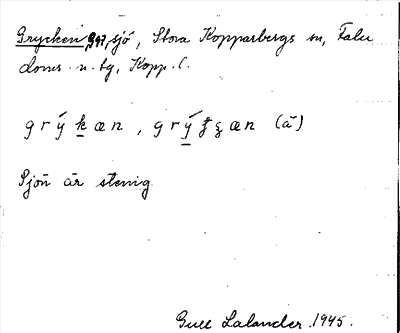 Grycken, sjö, Stora Kopparbergs sn, Falu
doms. n. tg, Kopp. l.
grýkæn, grý
Sjön är stenig
Gull Lalander. 1945.